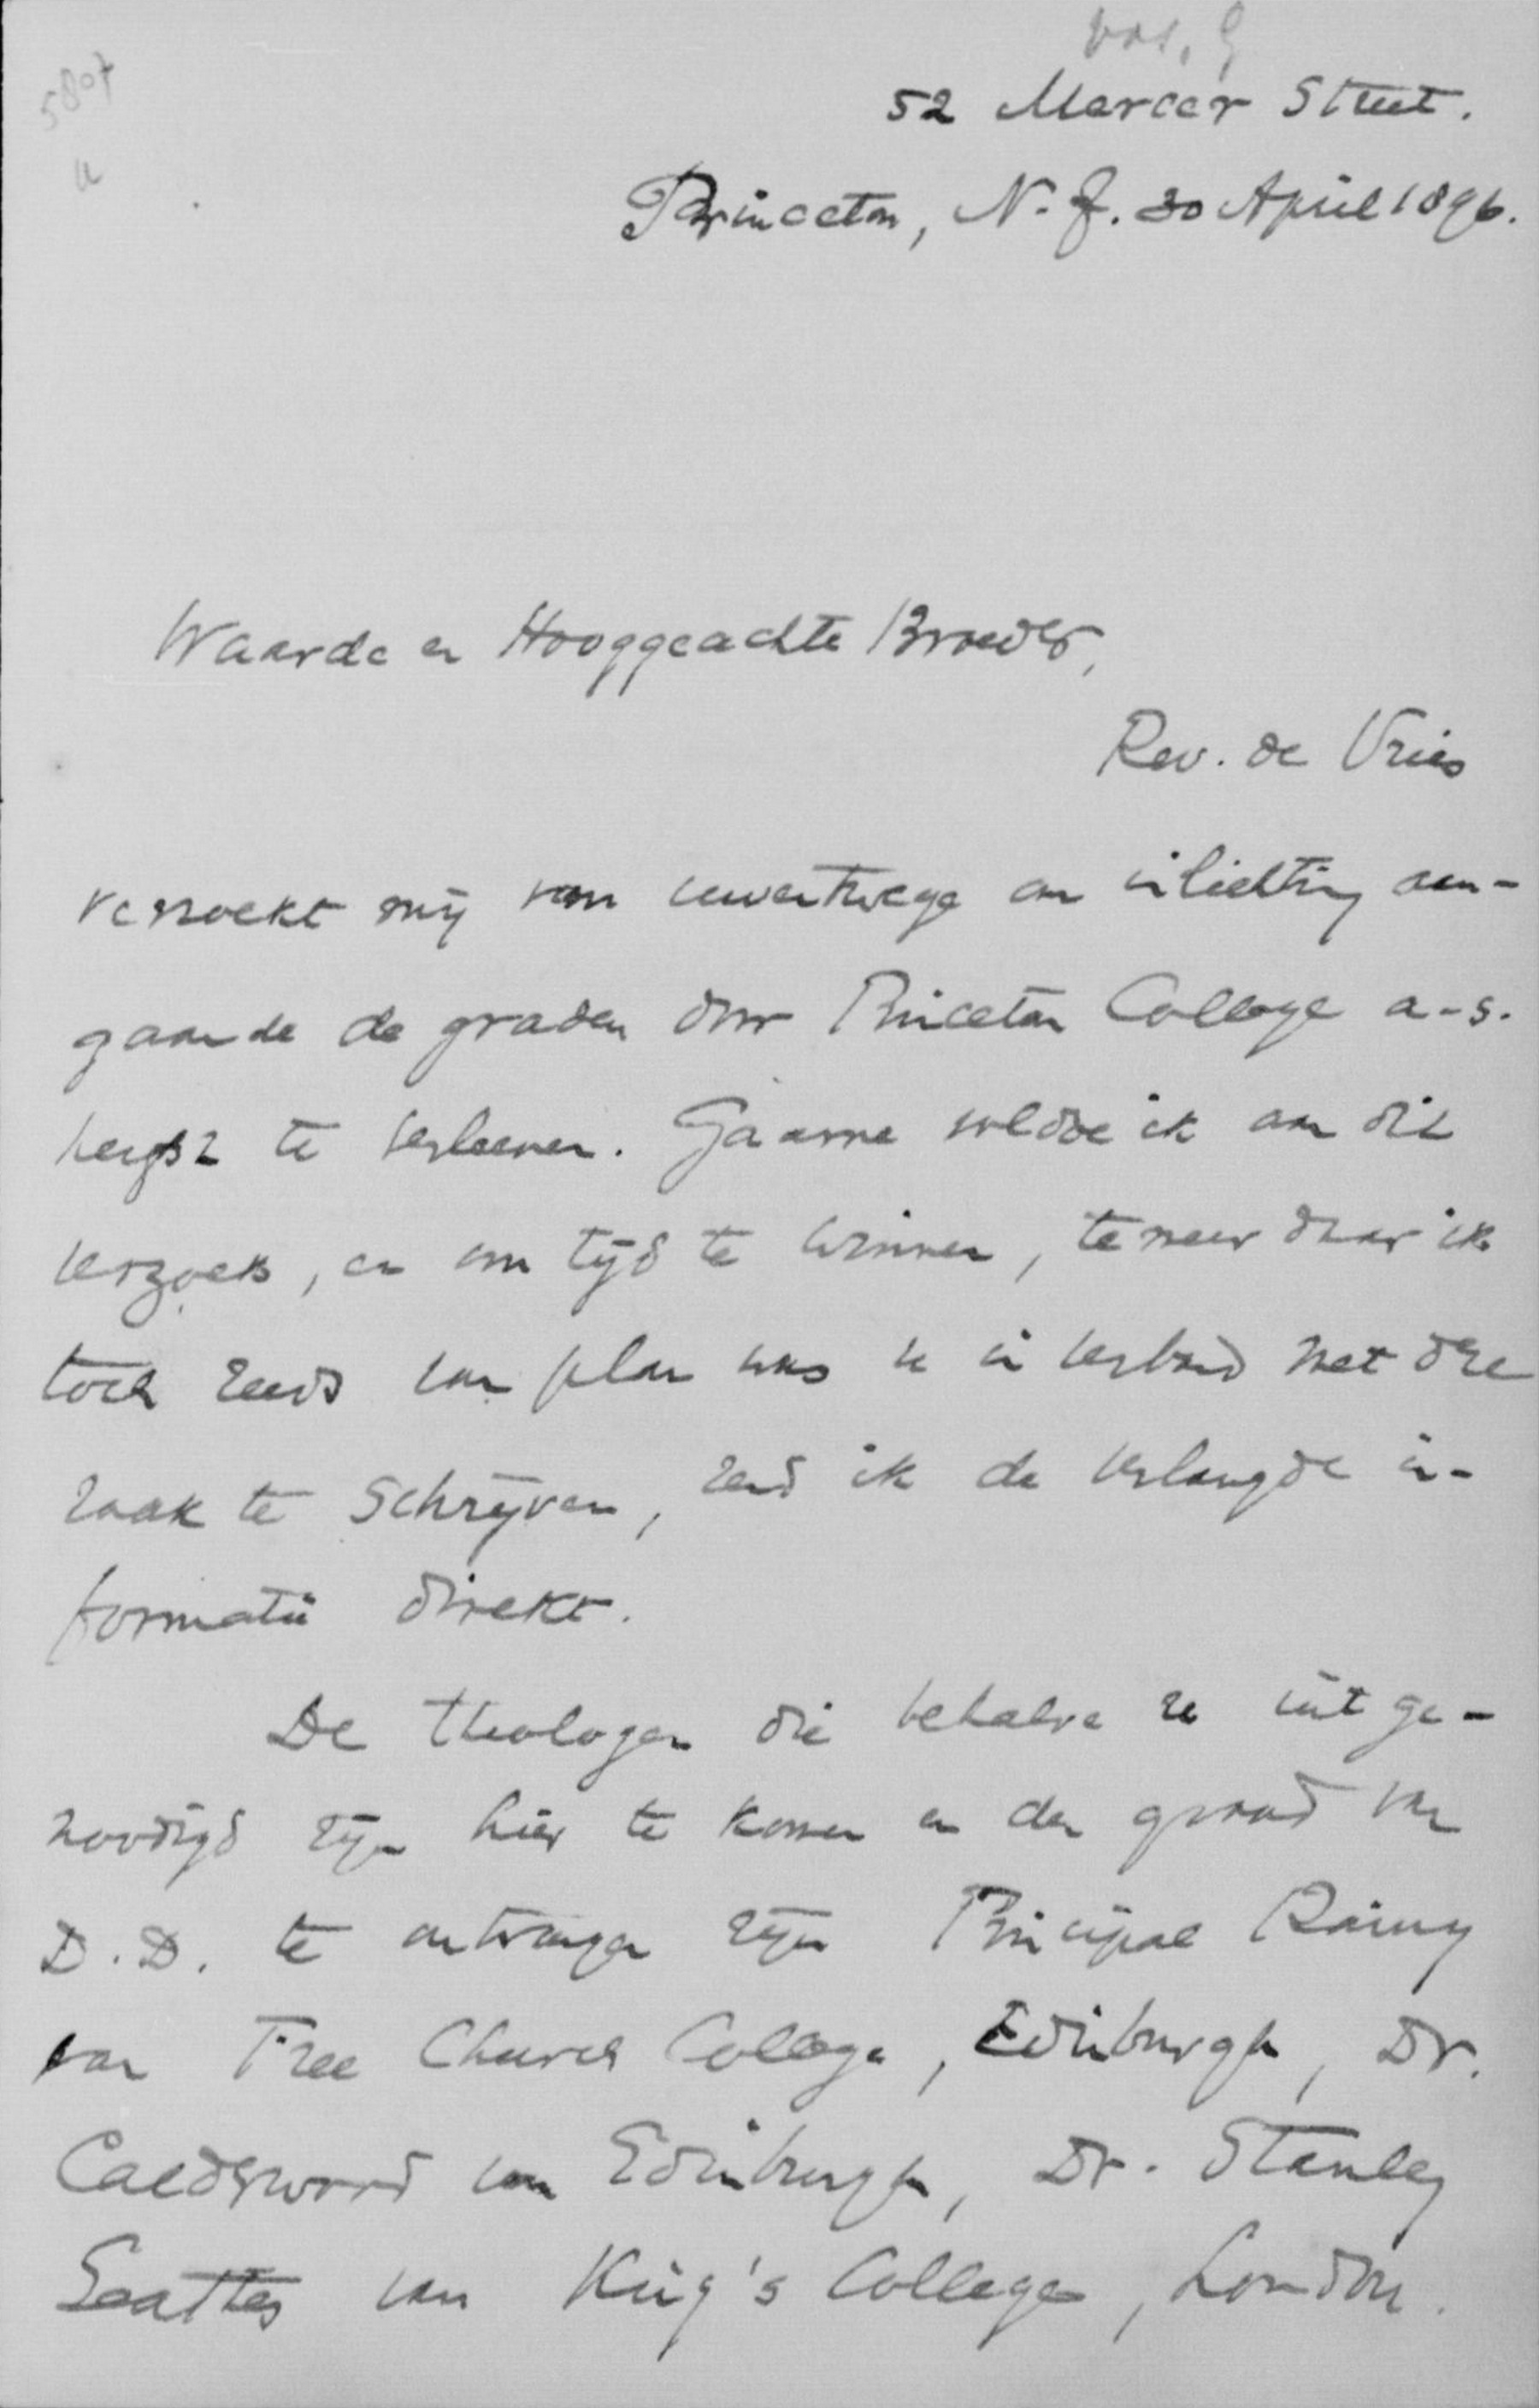 Vos, G
5807
a
52 Mercer Street.
Princeton, N. J. 30 April 1896.
Waarde en Hooggeachte Broeder,
Rev. de Vries
verzoekt mij van uwentwege om inlichting aan-
gaande de graden door Princeton College a.s.
herfst te verleenen. Gaarne voldoe ik aan dit
verzoek, en om tijd te winnen, te meer daar ik
toch reeds van plan was u in verband met deze
zaak te schrijven, zend ik de verlangde in-
formatie direkt.
De theologen die behalve u uitge-
noodigd zijn hier te komen en den graad van
D.D. te ontvangen zijn Principal Rainy
van Free Church College, Edinburgh, Dr.
Calderwood van Edinburgh, Dr. Stanley
Leathes van King's College, London.